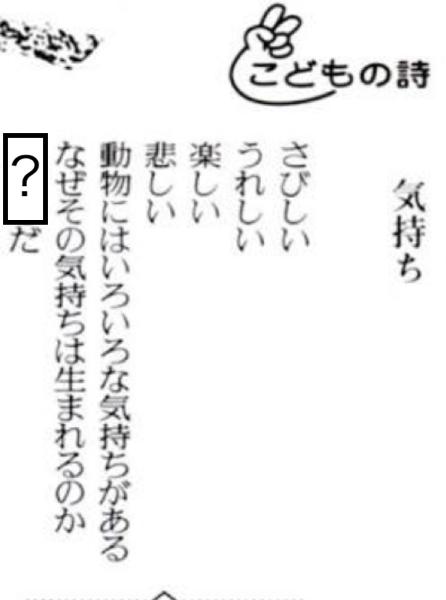 こどもの詩
気持ち
さびしい
うれしい
楽しい
悲しい
動物にはいろいろな気持ちがある
なぜその気持ちは生まれるのか
?だ